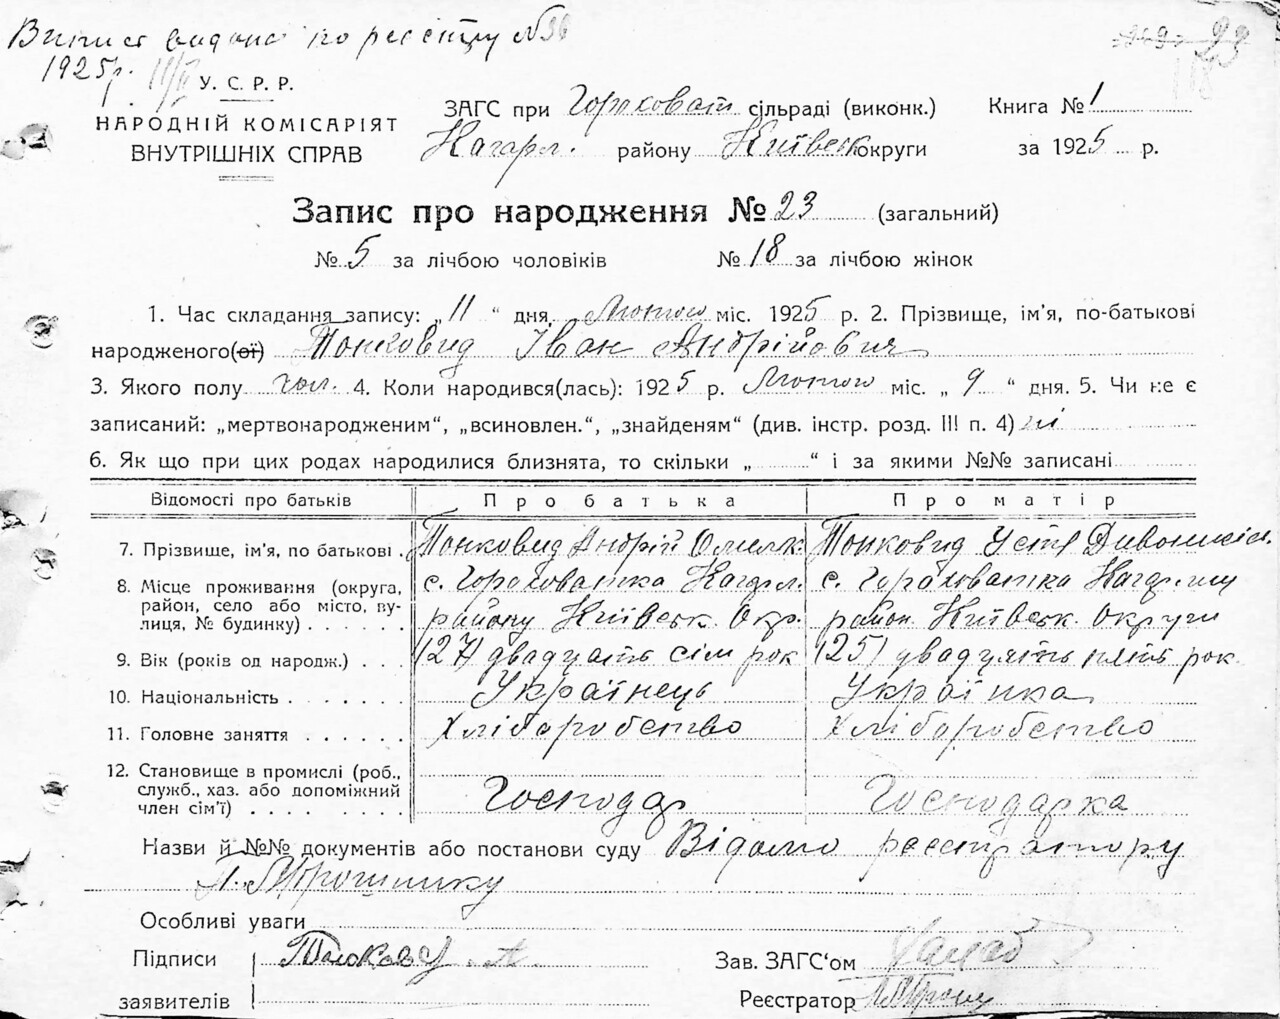 Випис видано по реєстру №36
1925р.
У. С. Р. Р.
НАРОДНІЙ КОМІСАРІЯТ
ВНУТРІШНІХ СПРАВ
23
ЗАГС при Гороховат. сільраді (виконк.) Книга № 1
Кагарл. району Київськ округи за 1925 р.
Запис про народження № 23 (загальний)
№ 5 за лічбою чоловіків № 18 за лічбою жінок
1. Час складання запису: „11“ дня Лютого міс. 1925 р. 2. Прізвище, ім'я, по-батькові
народженого(ої) Тонковид Іван Андрійович
3. Якого полу чол. 4. Коли народився(лась): 1925 р. Лютого міс. „9“ дня. 5. Чи не є
записаний: „мертвонародженим“, „всиновлен.“, „знайденям“ (див. інстр. розд. III п. 4) ні
6. Як що при цих родах народилися близнята, то скільки „ “ і за якими №№ записані
Відомості про батьків Про батька Про матір
7. Прізвище, ім'я, по батькові . Тонковид Андрій Омельк. Тонковид Устя
8. Місце проживання (округа, район, село або місто, вулиця, № будинку) . . . . . .
с. Гороховатка Кагарл. району Київськ. Окр.
с. Гороховатка район. Київськ. Округи
9. Вік (років од народж.) . . . (27) двадцять сім рок (25) двадцять пять рок.
10. Національність . . . . . . . Українець Українка
11. Головне заняття . . . . . . Хліборобство Хліборобство
12. Становище в промислі (роб., служб., хаз. або допоміжний член сім'ї) . . . . . . . . .
Господар Господарка
Назви й №№ документів або постанови суду Відомо реєстратору
П. Трошнику
Особливі уваги
Підписи Тонковид. А.
Зав. ЗАГС'ом
заявителів
Реєстратор